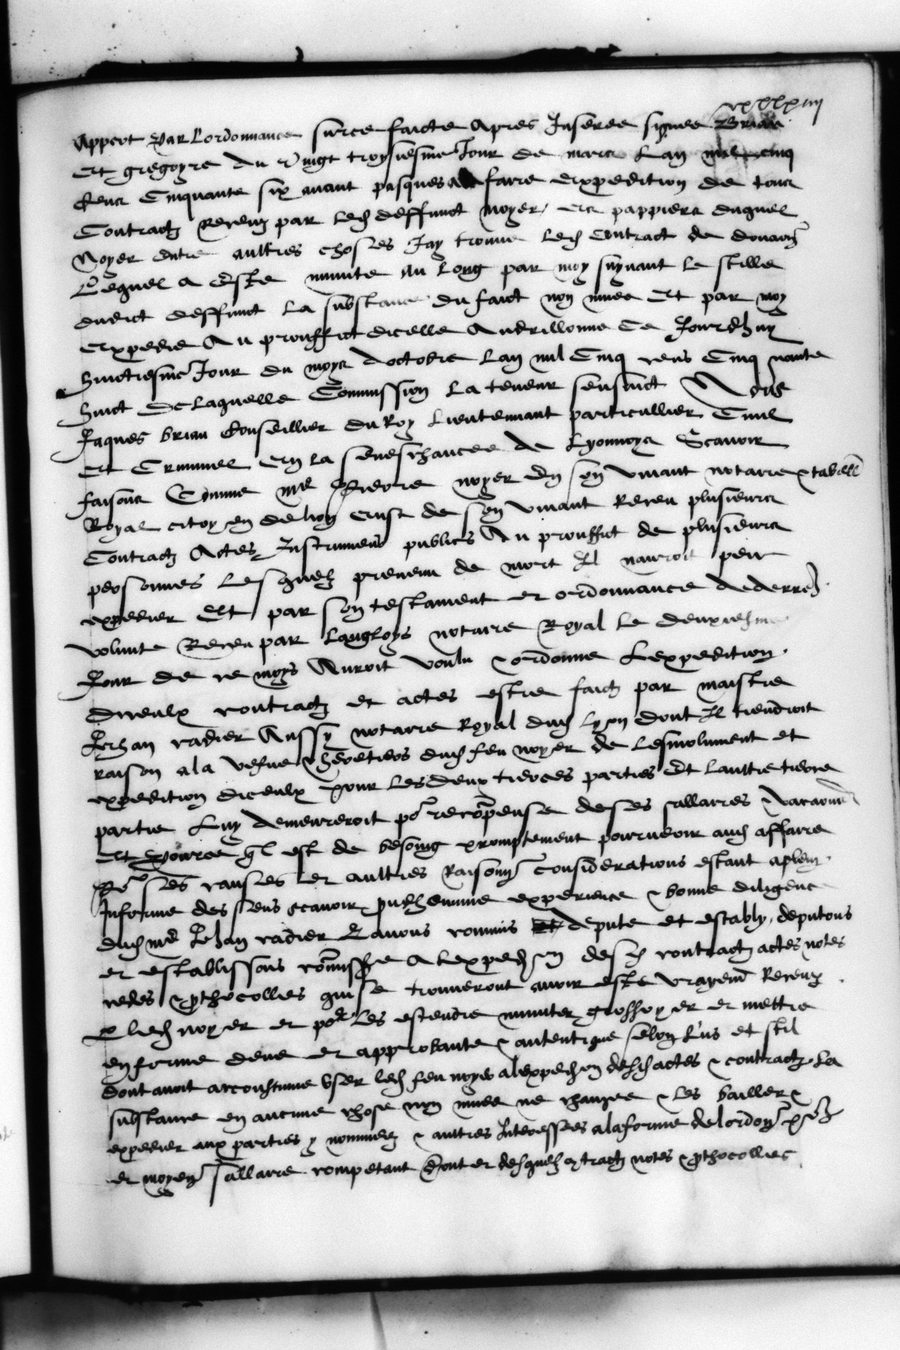 appert par lordonnance sur ce faicte apres Inseree signee Brian
et gregoyre du vingt troysiesme Jour de mars Lan mil cinq
cens Cinquante six avant pasques a faire expedition de tous
Contractz Receuz par led deffunct noyer, es pappiers duquel
Noyer entre aultres choses Jay trouve led contract de
Lequel a este minute au long par moy suyvant le stille
dudict deffunct la substance du faict non muee Et par moy
expedie Au prouffict dicelle Ce Jourdhuy
huictiesme Jour du moys doctobre Lan mil Cinq cens Cinquante
huict De laquelle Commission La teneur sensuict Nous
Jaques brian Conseillier du Roy Lieutennant particullier Civil
et Criminel en la seneschaucee de Lyonnoys Scavoir
faisons Comme me Pierre noyer en son vivant notaire & tabell
Royal citoyen de lyon eust de son vivant Receu plusieurs
Contractz Actes Instrumens publics Au prouffict de plusieurs
personnes Lesquelz prevenu de mort Il nauroit peu
expedier Et par son testament et ordonnance de derre
volunte Receu par Langloys notaire Royal le deuxiesme
Jour de ce moys Auroit voulu & ordonne Lexpedition
diceulx contractz et actes estre faicte par maistre
Jehan radier Aussy notaire Royal dud Lyon dont Il tiendroit
raison a la vefve & heretiers dud feu noyer de Lesmolument et
expedition diceulx pour les deux tierces parties Et laultre tierce
partie Luy demeureroit po recompense de ses sallaires & vacaons
Et pource ql est de besoing promptement pourveoir aud affaire
Po ces causes et aultres Raisons considerations estant a plein
Informe des sens scavoir preudhommie experience & bonne diligence
dud me Jehan radier Lavons commis depute et estably, deputons
et establissons commissre a lexpedion desd contractz actes notes
cedes & prothocolles qui se trouveront avoir este vrayemt Receuz
p led noyer et po les estendre minuter grossoyer et mettre
en forme deue et approbante & autentique selon lus et stil
dont avoit accoustume user led feu noyer a lexpedion desd actes & contractz La
substance en aucune chose non muee ne changee & Les bailler &
expedier aux parties y nommees & aultres Interessees a la forme de lordon
et moyen sallaire competant Dont et desquelz contractz notes & prothocolles